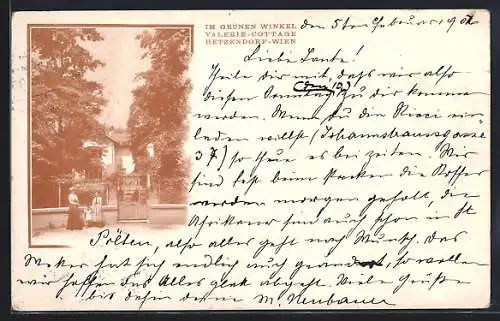 IM GRÜNEN WINKEL
VALERIE-COTTAGE
HETZENDORF-WIEN
den 5ten Februar 1902
Liebe Tante!
Theile Dir mit, dass wir also
diesen Sonntag zu dir kommen
(den 10)
werden. Wenn du den Ricci ein
laden willst (Johannshausgasse
37) so thue es bei zeiten. Wir
sind fest beim Packen die Koffer
werden morgen geholt, die
Afrikaner sind auch schon in St
Pölten, also alles geht nach Wunsch. Das
Wetter hat sich endlich auch geändert, so wollen
wir hoffen das Alles glatt abgeht. Viele Grüße
bis dahin deine M. Neubauer